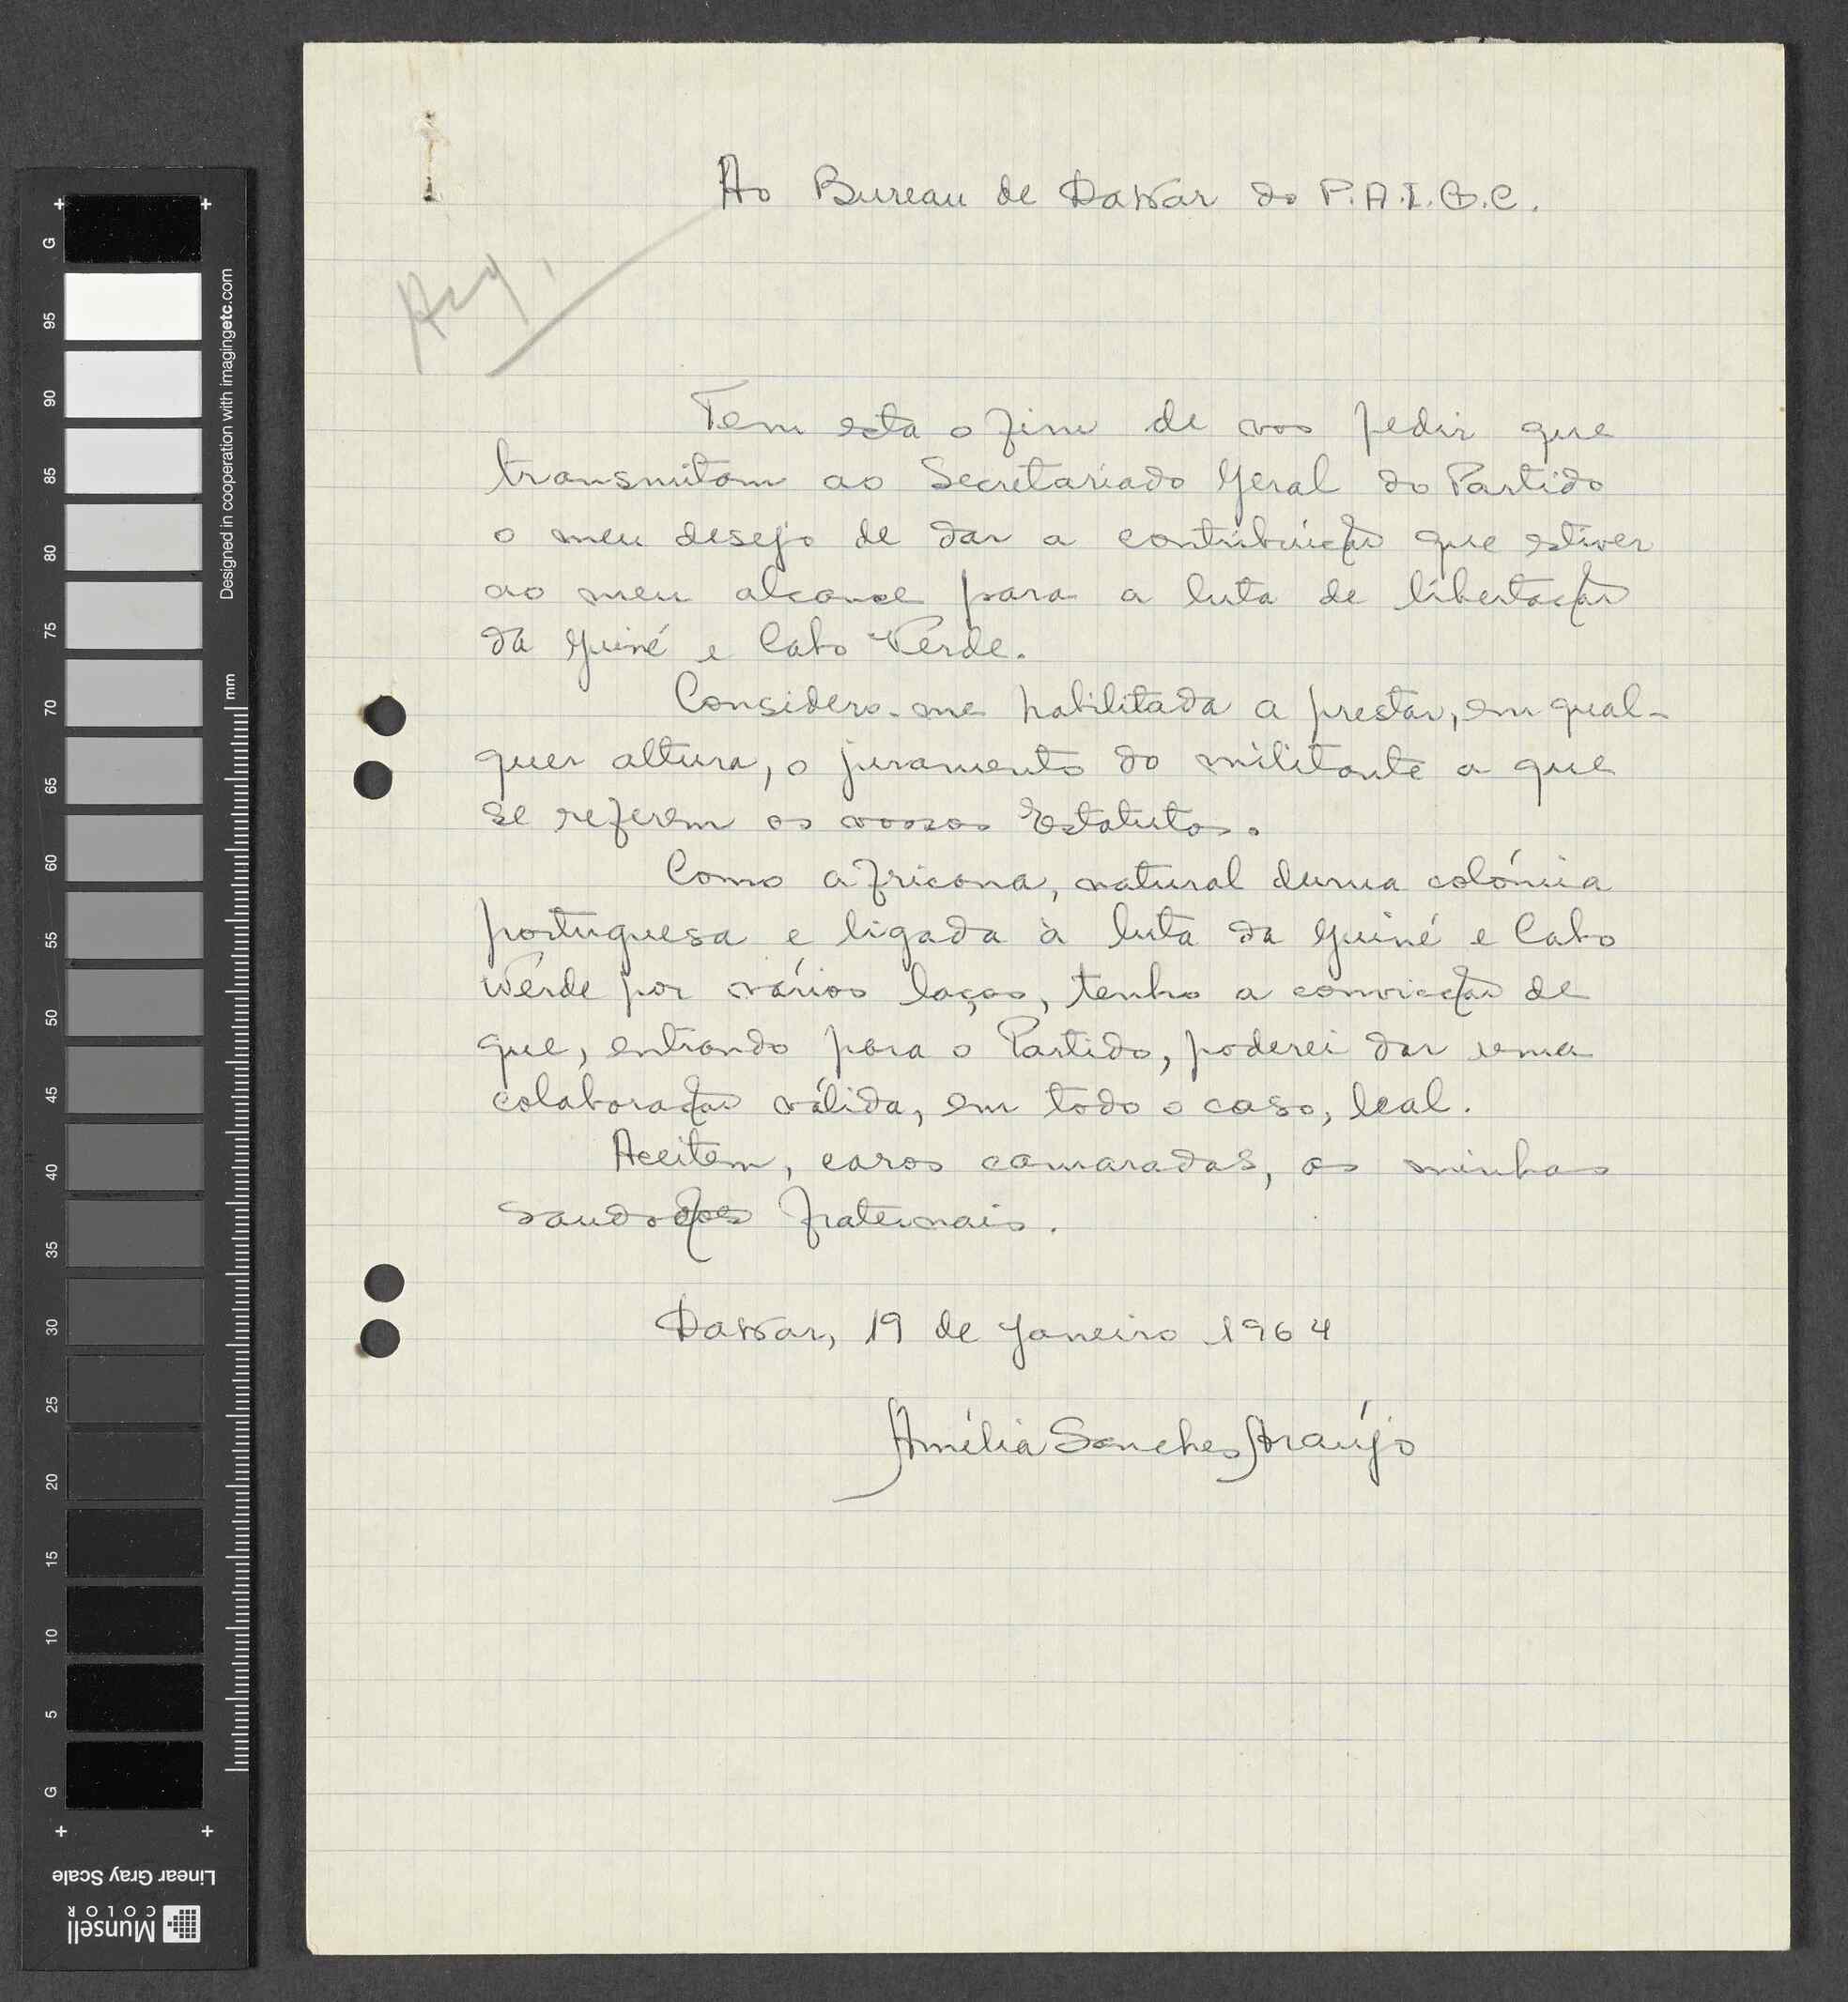 Ao Bureau de Dakar do P.A.I.G.C.
Arq.
Tem esta o fim de vos pedir que
transmitam ao Secretariado Geral do Partido
o meu desejo de dar a contribuição que estiver
ao meu alcance para a luta de libertação
da Guiné e Cabo Verde.
Considero-me habilitada a prestar, em qual-
quer altura, o juramento do militante a que
se referem os vossos Estatutos.
Como africana, natural duma colónia
portuguesa e ligada à luta da Guiné e Cabo
Verde por vários laços, tenho a convicção de
que, entrando para o Partido, poderei dar uma
colaboração válida, em todo o caso, leal.
Aceitem, caros camaradas, as minhas
saudações fraternais.
Dakar, 19 de Janeiro 1964
Amélia Sanches Araújo
G
95
90
85
80
75
70
65
60
55
50
45
40
35
30
25
20
15
10
5
G
Designed in cooperation with imagingetc.com
mm
Linear Gray Scale
Munsell
COLOR